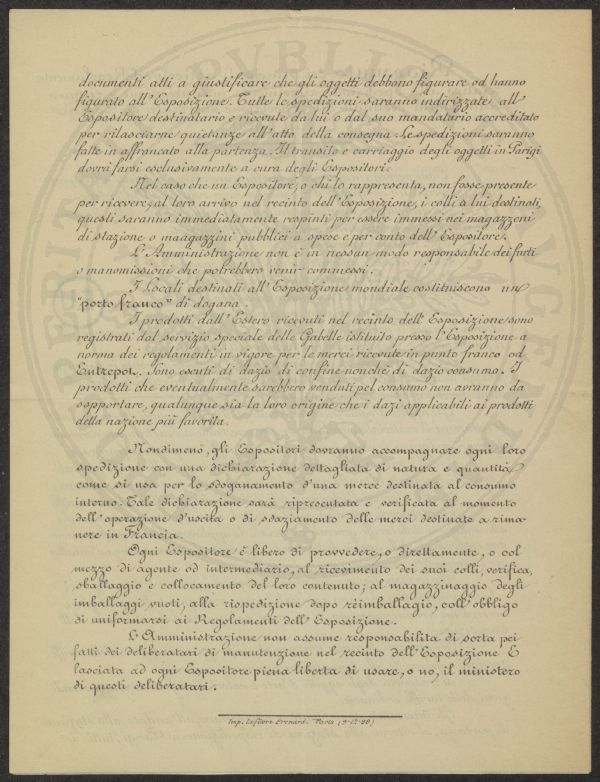 documenti atti a giustificare che gli oggetti debbono figurare od hanno
figurato all'Esposizione. Tutte le spedizioni saranno indirizzate all'
Espositore destinatario e ricevute da lui o dal suo mandatario accreditato
per rilasciarne quietanze all'atto della consegna. Le spedizioni saranno
fatte in affrancato alla partenza. Il transito e carriaggio degli oggetti in Parigi
dovrà farsi esclusivamente a cura degli Espositori.
Nel caso che un Espositore, o chi lo rappresenta, non fosse presente
per ricevere, al loro arrivo nel recinto dell'Esposizione, i colli a lui destinati,
questi saranno immediatamente respinti per essere immessi nei magazzeni
di stazione o maagazzini pubblici a spese e per conto dell'Espositore.
L'Amministrazione non è in nessun modo responsabile dei furti
o manomissioni che potrebbero venir commessi.
I Locali destinati all'Esposizione mondiale costituiscono un
"porto franco" di dogana.
I prodotti dall'Estero ricevuti nel recinto dell'Esposizione sono
registrati dal servizio speciale delle Gabelle istituito presso l'Esposizione a
norma dei regolamenti in vigore per le merci ricevute in punto franco od
Entrepot. Sono esenti di dazio di confine nonche di dazio consumo. I
prodotti che eventualmente sarebbero venduti pel consumo non avranno da
sopportare, qualunque sia la loro origine che i dazi applicabili ai prodotti
della nazione più favorita.
Nondimeno, gli Espositori dovranno accompagnare ogni loro
spedizione con una dichiarazione dettagliata di natura e quantità
come si usa per lo sdoganamento d'una merce destinata al consumo
interno. Tale dichiarazione sarà ripresentata e verificata al momento
dell'operazione d'uscita o di sdaziamento delle merci destinate a rima-
nere in Francia.
Ogni Espositore è libero di provvedere, o direttamente, o col
mezzo di agente od intermediario, al ricevimento dei suoi colli, verifica,
sballaggio e collocamento del loro contenuto; al magazzinaggio degli
imballaggi vuoti, alla rispedizione dopo rèimballagio, coll'obbligo
di uniformarsi ai Regolamenti dell'Esposizione.
L'Amministrazione non assume responsabilita di sorta pei
fatti dei deliberatari di manutenzione nel recinto dell'Esposizione E
lasciata ad ogni Espositore piena liberta di usare, o no, il ministero
di questi deliberatari.
Imp. Lefèvre Evrard. Paris (9-12-98)